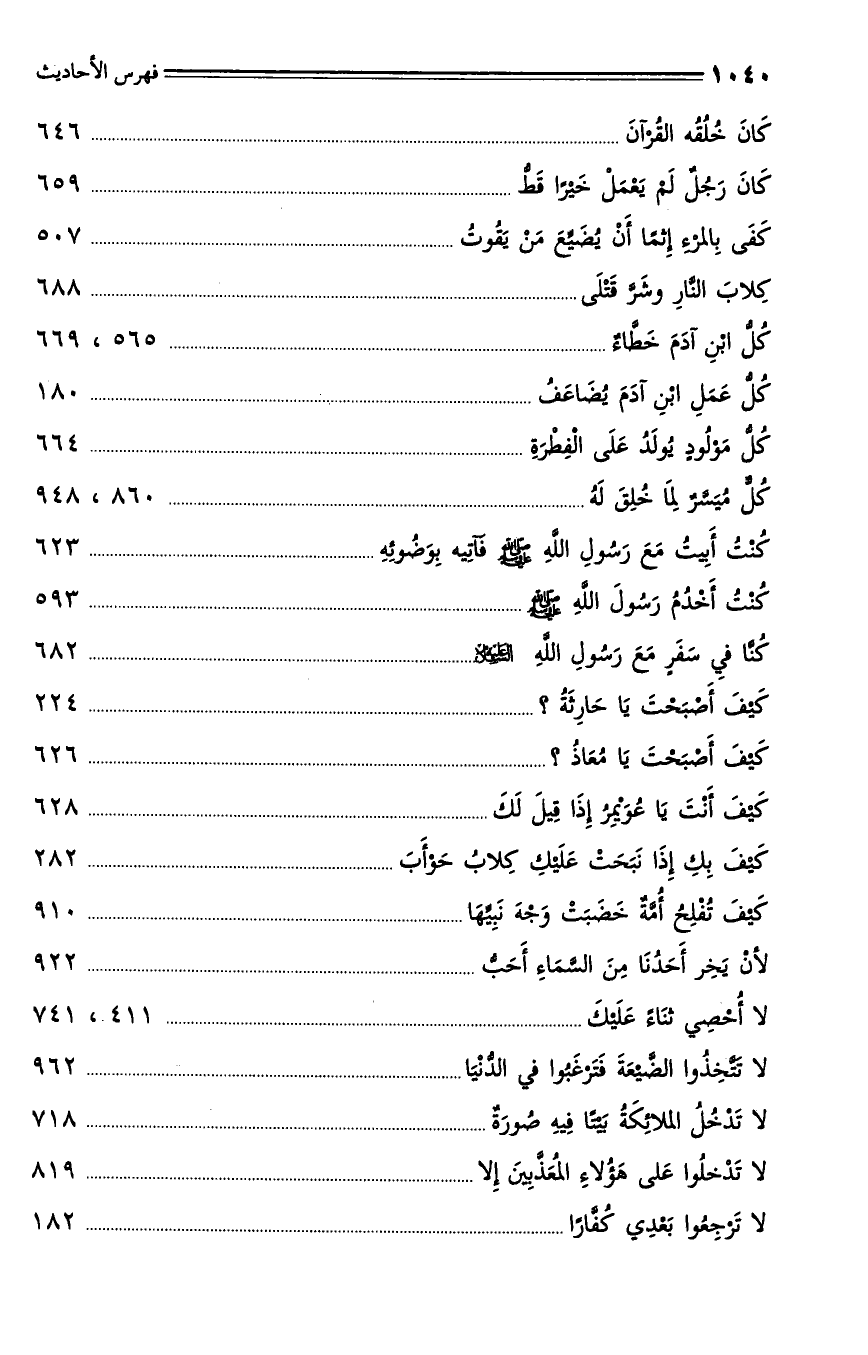 ١٠٤٠ فهرس الأحاديث
كَانَ خُلُقُه القُرْآنَ ٦٤٦
كَانَ رَجُلٌ لَمْ يَعْمَلْ خَيْرًا قَطُّ ٦٥٩
كَفَى بِالمَرْءِ إِثمًا أَنْ يُضَيِّعَ مَنْ يَقُوتُ ٥٠٧
كِلابَ النَّارِ وشَرَّ قَتْلَى ٦٨٨
كُلُّ ابْنِ آدَمَ خَطَّاءٌ ٥٦٥ ، ٦٦٩
كُلُّ عَمَلِ ابْنِ آدَمَ يُضَاعَفُ ١٨٠
كُلُّ مَوْلُودٍ يُولَدُ عَلَى الْفِطْرَةِ ٦٦٤
كُلٌّ مُيَسَّرٌ لِمَا خُلِقَ لَهُ ٨٦٠ ، ٩٤٨
كُنْتُ أَبِيتُ مَعَ رَسُولِ اللَّهِ ﷺ فَآتِيه بِوَضُوئِهِ ٦٢٣
كُنْتُ أَخْدُمُ رَسُولَ اللَّهِ ﷺ ٥٩٣
كُنَّا فِي سَفَرٍ مَعَ رَسُولِ اللَّهِ ٦٨٢
كَيْفَ أَصْبَحْتَ يَا حَارِثَةُ ؟ ٢٢٤
كَيْفَ أَصْبَحْتَ يَا مُعَاذُ ؟ ٦٢٦
كَيْفَ أَنْتَ يَا عُوَيْمِرُ إِذَا قِيلَ لَكَ ٦٢٨
كَيْفَ بِكِ إِذَا نَبَحَتْ عَلَيْكِ كِلابُ حَوْأَبَ ٢٨٢
كَيْفَ تُفْلِحُ أُمَّةٌ خَضَبَتْ وَجْهَ نَبِيِّهَا ٩١٠
لأنْ يَخِر أَحَدُنَا مِنَ السَّمَاءِ أَحَبُّ ٩٢٢
لا أُحْصِي ثنَاءً عَلَيْكَ ٤١١ ، ٧٤١
لا تَتَّخِذُوا الضَّيْعَةَ فَتَرْغَبُوا في الدُّنْيَا ٩٦٢
لا تَدْخُلُ الملائِكَةُ بَيْتًا فِيهِ صُورَةٌ ٧١٨
لا تَدْخلُوا عَلى هَؤُلاءِ المُعَذَّبِينَ إِلا ٨١٩
لا تَرْجِعُوا بَعْدِي كُفَّارًا ١٨٢